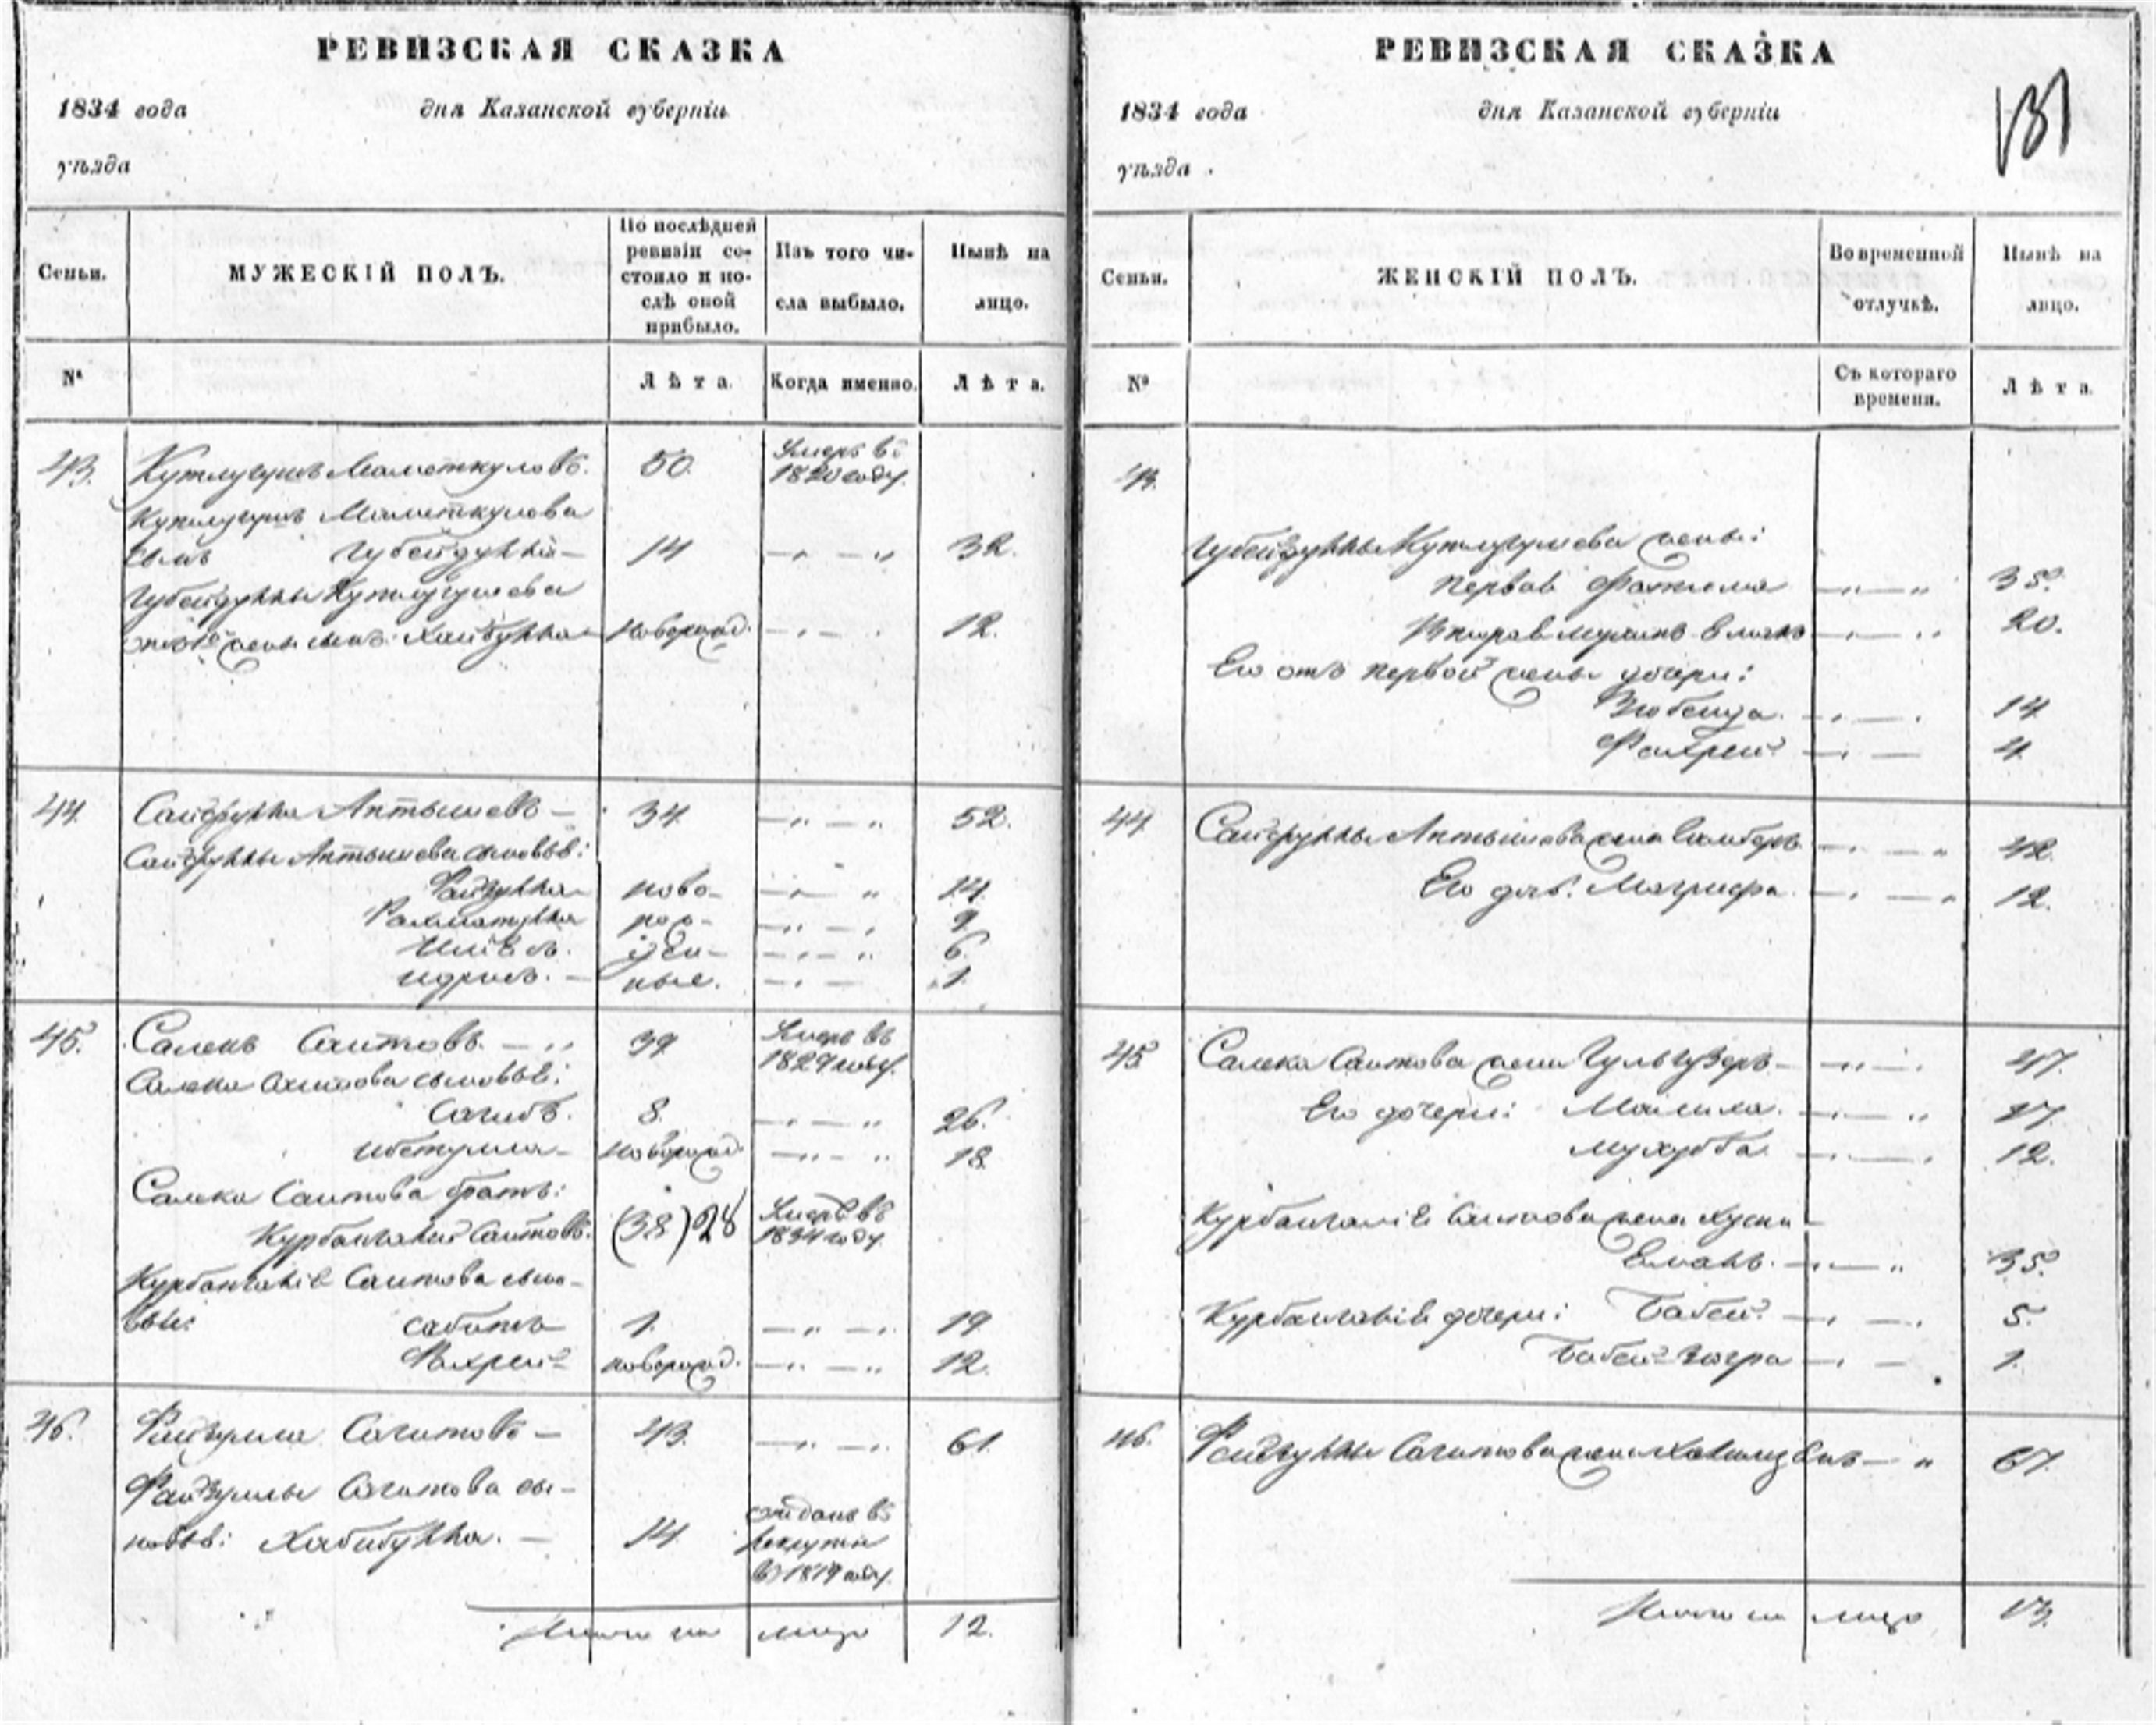 РЕВИЗСКАЯ СКАЗКА
1834 года дня Казанской губерніи
уѣзда
Семьи. МУЖЕСКІЙ ПОЛЪ. По послѣдней ревизіи состояло и послѣ оной прибыло. Изъ того числа выбыло. Нынѣ на лицо.
№ Лѣта. Когда именно. Лѣта.
43. Кутлугушъ Маметкуловъ. 50. Умеръ въ 1820 году.
Кутлугуша Маметкулова
сынъ Губейдулла 14 32.
Губейдуллы Кутлугушева
жены сынъ Хайбулла новорожд. 12.
44. Сайфулла Аптышевъ 34 52.
Сайфуллы Аптышева сыновья:
Файзулла ново- 14.
Рахматулла рож- 9
ден- 6.
Идрисъ. ные. 1.
45. Салекъ Саитовъ. 39. Умеръ въ 1829 году.
Салека Саитова сыновья:
Сагитъ. 8. 26.
новорожд. 18.
Салека Саитова братъ:
Курбангалей Саитовъ. (38) 28 Умеръ въ 1834 году.
Курбангалія Саитова сыно-
вья: Сабитъ 1. 19.
Фахрей новорожд. 12.
46. Файзулла Сагитовъ 43. 61.
Файзуллы Сагитова сы-
новья: Хабибулла. 14. отданъ въ рекруты въ 1819 году.
Итого на лицо 12.
РЕВИЗСКАЯ СКАЗКА
131
1834 года дня Казанской губерніи
уѣзда
Семьи. ЖЕНСКІЙ ПОЛЪ. Во временной отлучкѣ. Нынѣ на лицо.
№ Съ котораго времени. Лѣта.
43.
Губейдуллы Кутлугушева жены:
первая Фатима 35.
Вторая 20.
Его отъ первой жены дочери:
Зюбейда. 14.
Фахрей 4.
44. Сайфуллы Аптышева жена 42.
Его дочь: Магруфа. 12.
45. Салека Саитова жена Гульгузеръ 47.
Его дочери: 17.
12.
Курбангалія Саитова жена Хусни-
Емалъ. 35.
Курбангалія дочери: Бибей 5.
Бибей Загра 1.
46. Файзуллы Сагитова жена 67.
Итого на лицо 13.